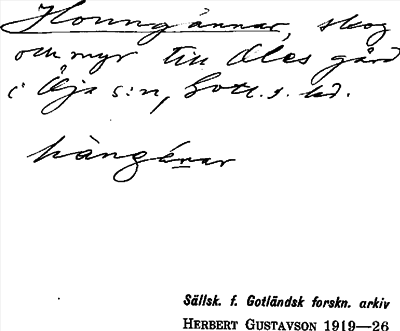 Hounngännar, skog
och myr till Oles gård
i Öja s:n, Gotl. s. hd.
hàngę́nar
Sällsk. f. Gotländsk forskn. arkiv
HERBERT GUSTAVSON 1919—26